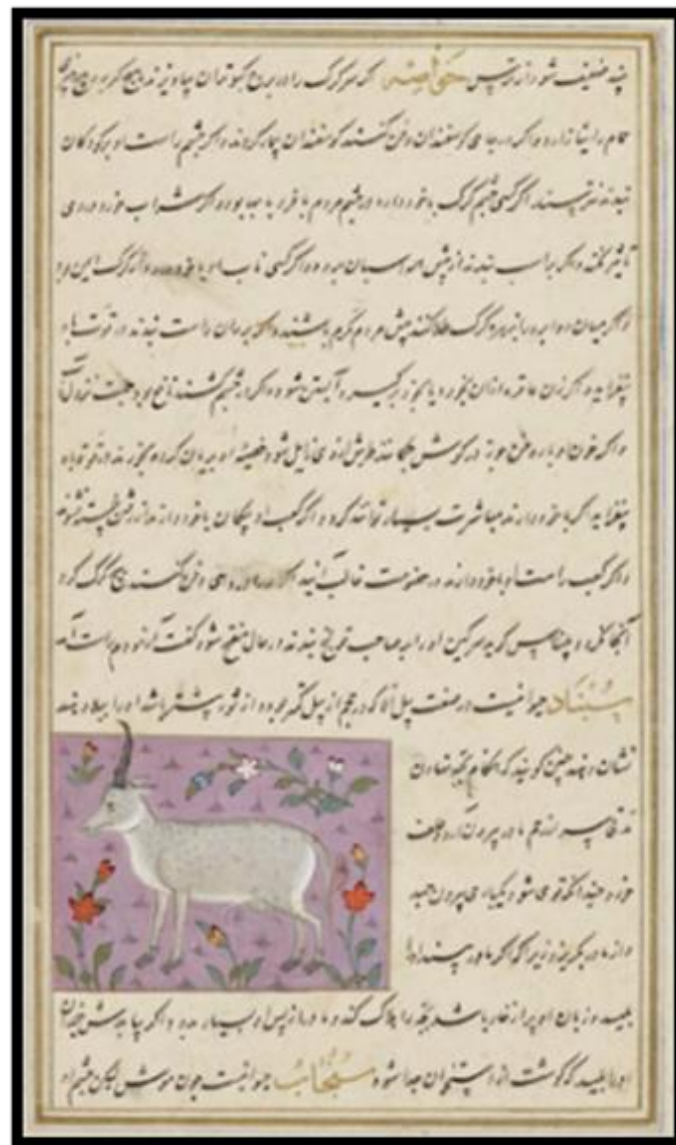 ضعیف شود از ترس خواصه اگر سر گرگ را در برج کبوتران بیاویزند هیچ گربه و هیچ
حمام را نیازارد و اگر در جای گوسفندان دفن کنند گوسفندان بیمار گردند و اگر چشم راست او بر کودکان
بندند نترسند اگر کسی چشم گرگ با خود دارد در چشم مردم با فر و با بها بود و اگر شراب خورد در وی
تاثیر نکند و اگر بر اسب بندند از پیش همه اسبان برود و اگر کسی ناب او با خود دارد از گرگ ایمن بود
و اگر میان دو ابرو را بزهره گرگ طلا کنند پیش مردم گرم باشند و اگر بر ران راست بندند در قوت باه
بیفزاید و اگر زن عاقره از ان بخورد یا بخود برگیرد آبستن شود و اگر در چشم کشند نافع بود جهت نزول آب
و اگر خون او با روغن جوز در گوش چکانند طرش از وی زایل شود خصیه او بریان کرده بخورند در قوت باه
بیفزاید اگر با خود دارند مباشرت بسیار توانند کرد و اگر کعب او با خود دارند از رفتن خسته نشوند
و اگر کعب راست او با خود دارند در خصومت غالب آیند اگر در دهی دفن کنند هیچ گرگ گرد
آنجا نگردد بلیناس گوید سرگین او را به صاحب قولنج بندند در حال منفتح شود گفت آزمودم راست آمد
سناد حیوانیست در صفت پیل الا که در حجم از پیل کمتر بود و از ثور بیشتر باشد او را ببلاد هند
نشان دهند چنین گویند که هنگام بچه نهادن
سر از رحم مادر بیرون آرد و علف
خورد چندانکه قوی شود یکباری بیرون جهد
و از مادر بگریزد زیرا که اگر مادر بیند او را
بلیسد و زبان او پر از خار باشد بچه را هلاک کند و مادر از پس او بسیار بدود و اگر بیابدش چندان
او را بلیسد که گوشت از استخوان جدا شود سنجاب حیوانیست چون موش لیکن چشم او